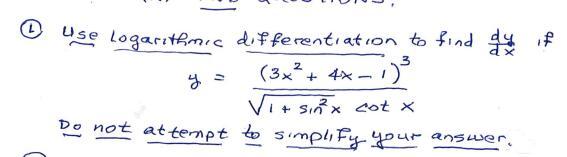 ① Use Logarithmic differentiation to find dy/dx if
y = (3x² + 4x - 1)³ / √(1 + sin²x) cot x
Do not attempt to simplify your answer.